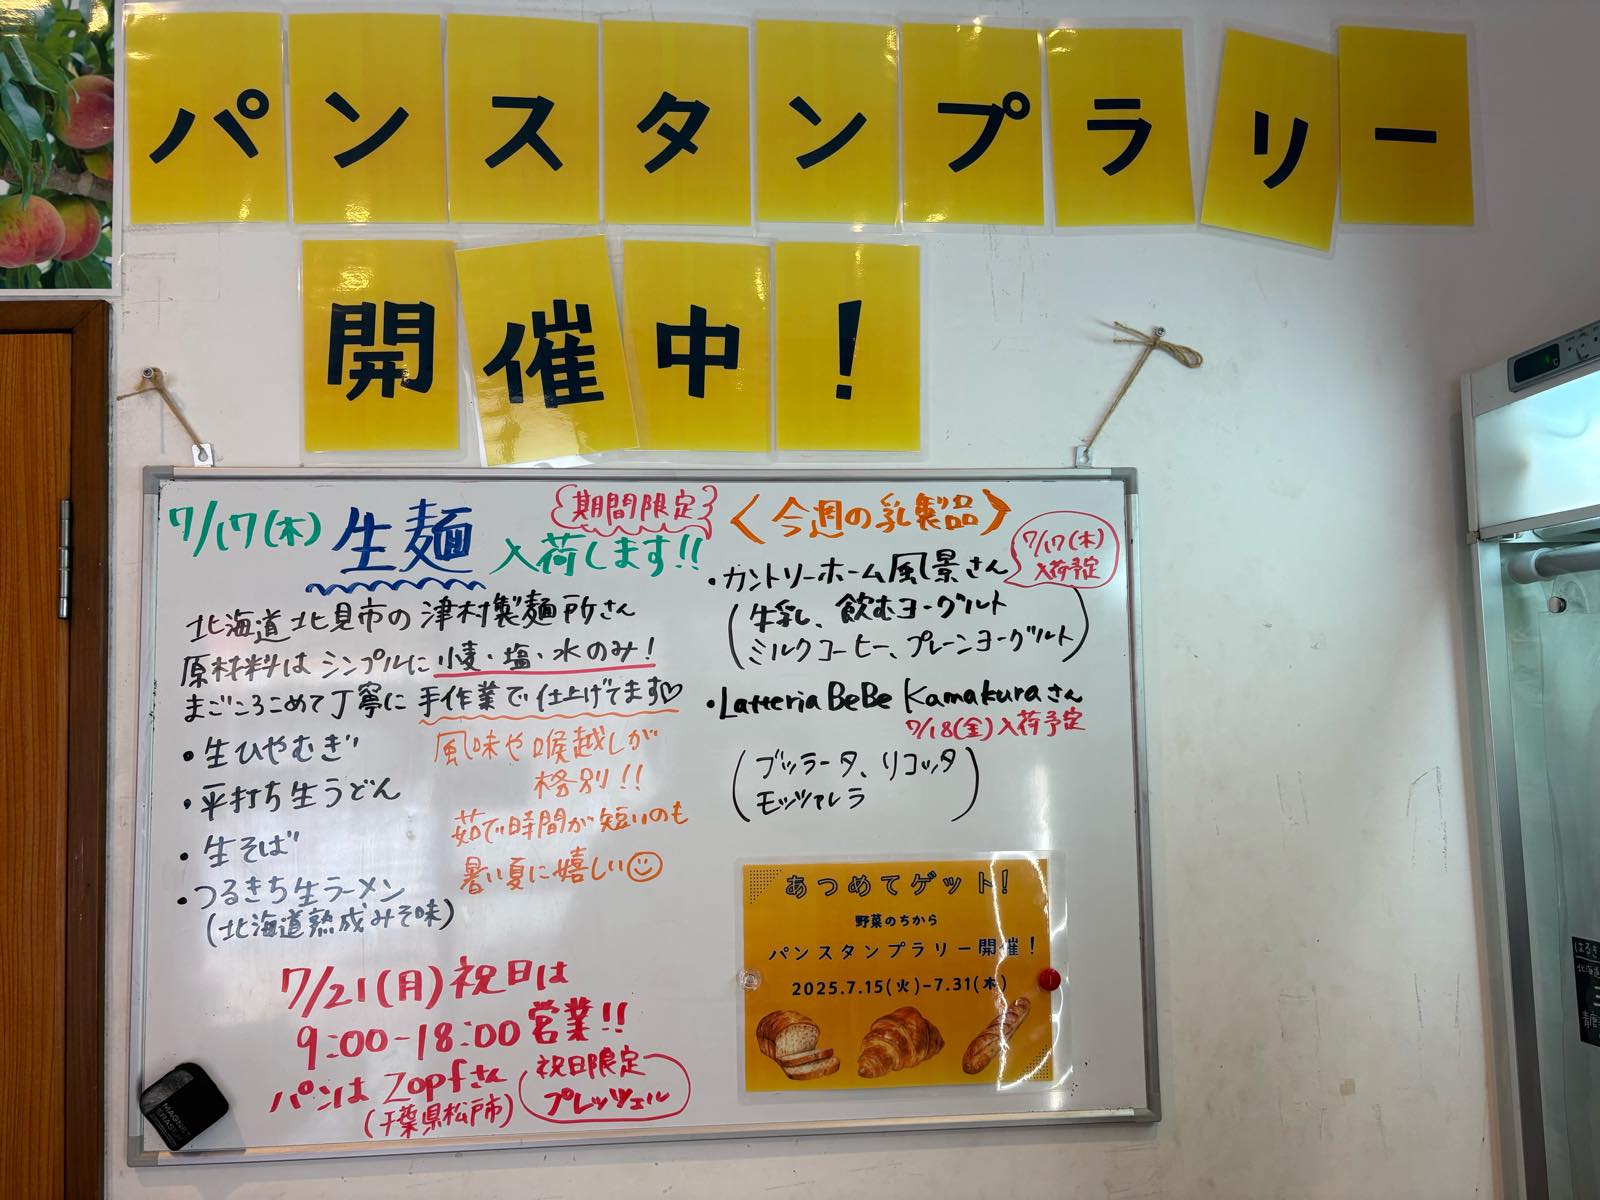 パンスタンプラリー
開催中！
7/17(木) 生麺 入荷します!!
期間限定
北海道北見市の津村製麺所さん
原材料はシンプルに小麦・塩・水のみ！
まごころこめて丁寧に手作業で仕上げてます♡
・生ひやむぎ
・平打ち生うどん
・生そば
・つるきち生ラーメン
(北海道熟成みそ味)
風味や喉越しが
格別!!
茹で時間が短いのも
暑い夏に嬉しい☺
7/21(月)祝日は
9:00-18:00営業!!
パンは Zopfさん
(千葉県松戸市)
祝日限定
プレッツェル
〈今週の乳製品〉
・カントリーホーム風景さん
7/17(木)
入荷予定
(牛乳、飲むヨーグルト
ミルクコーヒー、プレーンヨーグルト)
・Latteria BeBe Kamakuraさん
7/18(金)入荷予定
(ブッラータ、リコッタ
モッツァレラ)
あつめてゲット!
野菜のちから
パンスタンプラリー開催！
2025.7.15(火)-7.31(木)